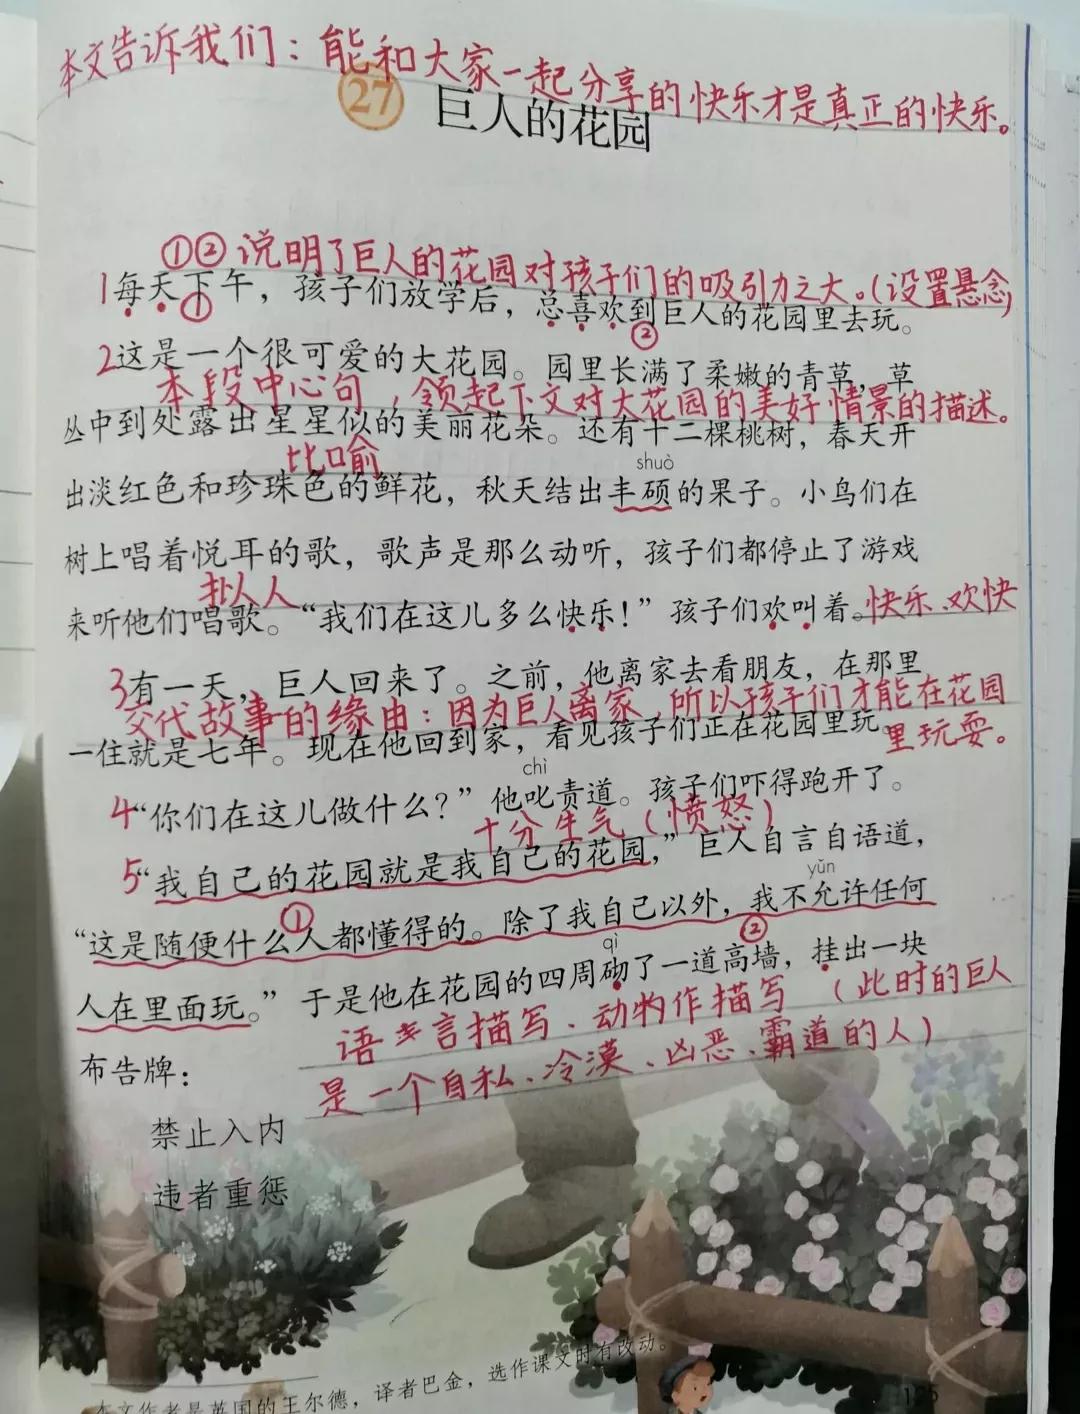 本文告诉我们：能和大家一起分享的快乐才是真正的快乐。
27 巨人的花园
①②说明了巨人的花园对孩子们的吸引力之大。（设置悬念）
1每天下午，孩子们放学后，总喜欢到巨人的花园里去玩。
① ②
2这是一个很可爱的大花园。园里长满了柔嫩的青草，草
本段中心句，领起下文对大花园的美好情景的描述。
丛中到处露出星星似的美丽花朵。还有十二棵桃树，春天开
比喻 shuò
出淡红色和珍珠色的鲜花，秋天结出丰硕的果子。小鸟们在
树上唱着悦耳的歌，歌声是那么动听，孩子们都停止了游戏
拟人
来听他们唱歌。“我们在这儿多么快乐！”孩子们欢叫着。快乐、欢快
3有一天，巨人回来了。之前，他离家去看朋友，在那里
交代故事的缘由：因为巨人离家，所以孩子们才能在花园
里玩耍。
一住就是七年。现在他回到家，看见孩子们正在花园里玩。
chì
4“你们在这儿做什么？”他叱责道。孩子们吓得跑开了。
十分生气（愤怒）
5“我自己的花园就是我自己的花园，”巨人自言自语道，
yǔn
“这是随便什么人都懂得的。除了我自己以外，我不允许任何
① qì ②
人在里面玩。”于是他在花园的四周砌了一道高墙，挂出一块
语言描写、动作描写（此时的巨人
布告牌：
是一个自私、冷漠、凶恶、霸道的人）
禁止入内
违者重惩
本文作者是英国的王尔德，译者巴金，选作课文时有改动。